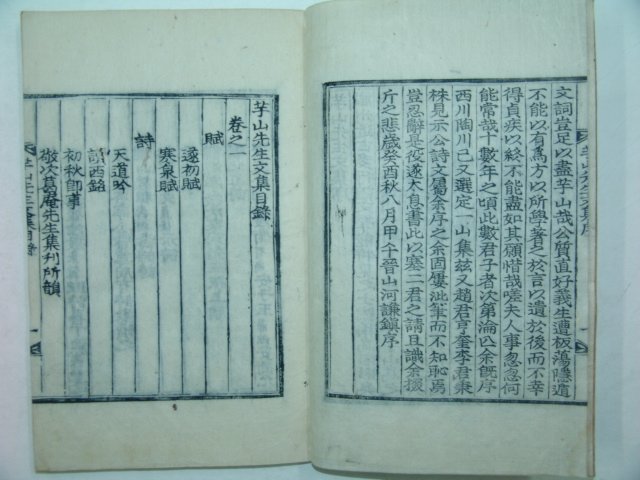 文詞豈足以盡芋山哉公質直好義生遭板蕩隱遁
不能以有爲方以所學著之於言以遺於後而不幸
得貞疾以終不能盡如其願惜哉嗟夫人事忽忽何
能常哉十數年之頃此數君子者次第淪亾余旣序
西川陶川已又選定一山集玆又趙君亨奎李君秉
株見示公詩文屬余序之余固屢泚筆而不知恥焉
豈忍辭是役遂太息書此以塞二君之請且識余掇
斤之悲歲癸酉秋八月甲午晉山河謙鎭序
芋山先生文集目錄
卷之一
賦
遂初賦
寒泉賦
詩
天道吟
讀西銘
初秋卽事
敬次葛庵先生集刊所韻